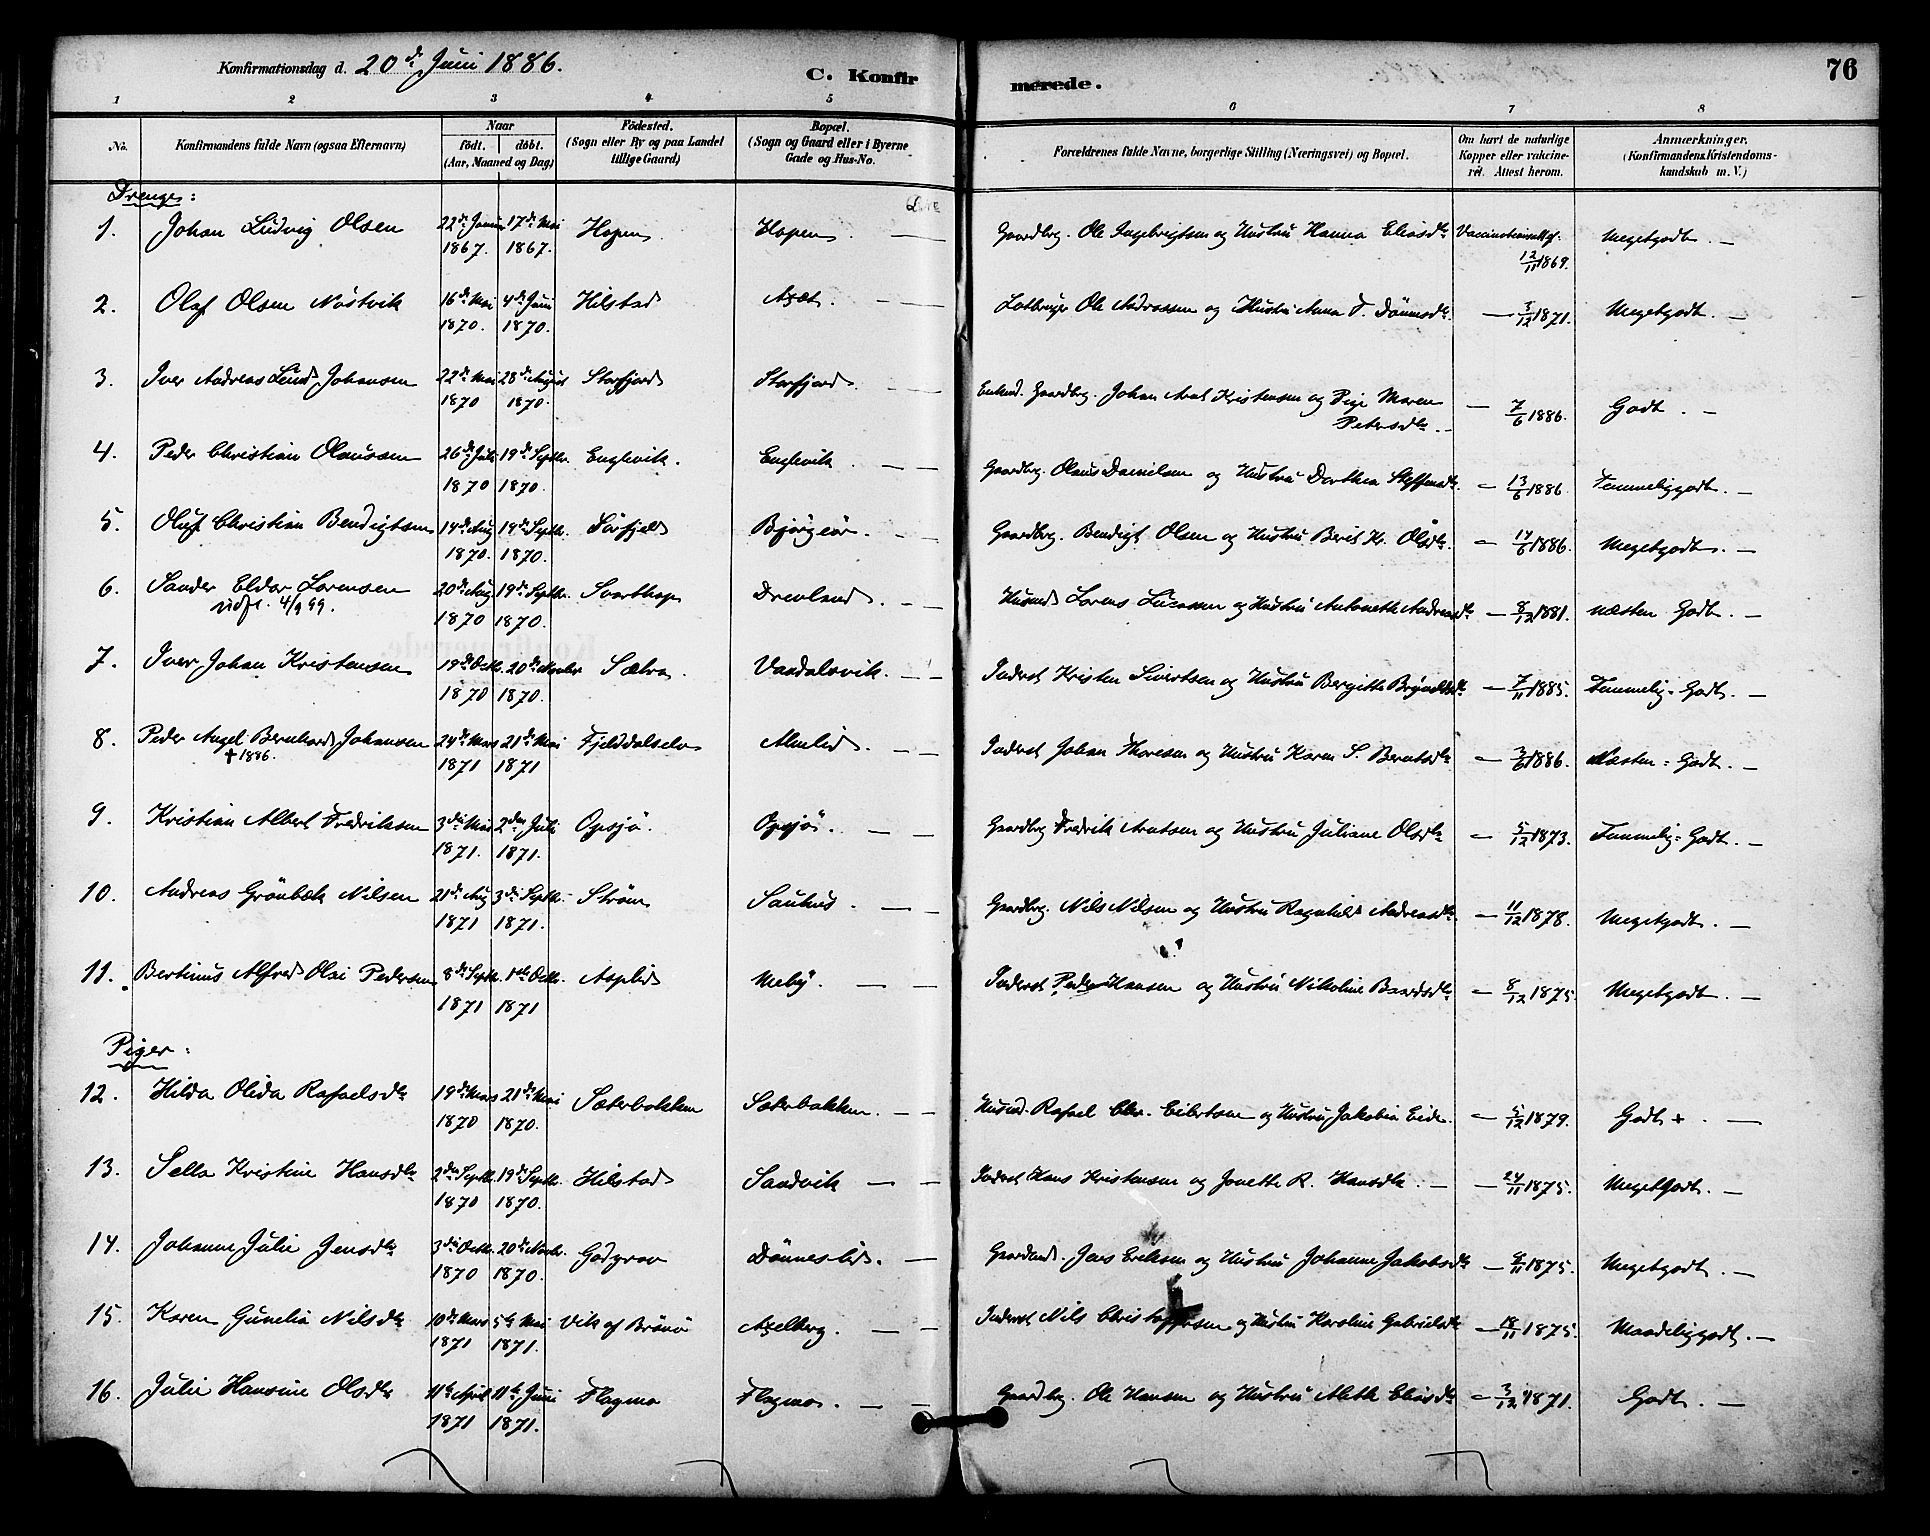 Konfirmationsdag d. 20de Juni 1886.
C. Konfirmerede.
76
1 2 3 4 5 6 7 8
No. Konfirmandens fulde Navn (ogsaa Efternavn) Naar født. døbt. (Aar, Maaned og Dag) Födested. (Sogn eller By og paa Landet tillige Gaard) Bopæl. (Sogn og Gaard eller i Byerne Gade og Hus-No. Forældrenes fulde Navne, borgerlige Stilling (Næringsvei) og Bopæl. Om havt de naturlige Kopper eller vakcineret. Attest herom. Anmærkninger. (Konfirmandens Kristendomskundskab m. V.)
Drenge:
1. Johan Ludvig Olsen 22de 1867. 17de Mai 1867. Hopen Hopen — Gaardbrg. Ole Ingebrigtsen og Hustru Hanna Eliasdtr Vaccinationsattest 12/11 1869. Megetgodt. —
2. Olaf Olsen Nöstvik 16de Mai 1870. 4de Juni 1870. Hilstad — Ole Andreassen og Hustru Anna 3/12 1871. Megetgodt. —
3. Iver Andreas Lund Johansen 22de Mai 1870 28de August 1870. Storfjord Storfjord. — Gaardbrg. Johan Kristensen og Pige Maren Petersdtr. — 7/6 1886. Godt. —
4. Peder Christian Olaussen 26de Juli 1870 19de Septbr. 1870. Englevik. Englevik. — Gaardbrg. Olaus Danielsen og Hustru Dorthea Steffensdtr. — 13/6 1886. Temmeliggodt. —
5. Oluf Christian Bendigtsen 14de Aug 1870. 19de Septbr. 1870. Bjørgeør. — Gaardbrg. Bendigt Olsen og Hustru Berit K. Olsdtr. — 14/6 1886. Megetgodt. —
6. Sander Eldor Lorensen 20de Aug 1870 19de Septbr. 1870. Svarthop Drevland. — Husmd Lorens Lucassen og Hustru Antonette Andreasdtr — 8/12 1881. næsten Godt. —
udfl. 4/9 99.
7. Iver Johan Kristensen 19de Octbr. 1870 20de Novbr 1870. Sælva. Vandalsvik. — Inderst Kristen Sivertsen og Hustru Bergitte — 7/11 1885. Temmelig = Godt. —
8. Peder Angel Bernhard Johansen 24de Mars 1871 21de Mai 1871 Fjelddalselv Almlid. — Inderst Johan Thoresen og Hustru Karen S. Berntsdtr — 3/6 1886. Næsten = Godt. —
+ 1886.
9. Kristian Albert Fredriksen 3die Mai 1871. 2den Juli 1871. Opsjö. Opsjö. — Gaardbrg Fredrik Arntsen og Hustru Juliane Olsdtr — 5/12 1873. Temmelig = Godt. —
10. Andreas Grönbæk Nilsen 21de Aug 1871 3die Septbr. 1871. Ström Sauhus. — Gaardbrg. Nils Nilsen og Hustru Ragnhild Andreasdtr — 11/12 1878. Megetgodt. —
11. Bertinus Alfred Olai Pedersen 8de Septbr. 1871 1ste Octbr. 1871 Asplid Meby. — Inderst Peder Hansen og Hustru Nikoline Baardsdtr — 8/12 1875. Megetgodt. —
Piger:
12. Hilda Olida Rafaelsdtr 19de Mars 1870 21de Mai 1870. Sæterbakken Sæterbakken. — Husmd. Rafael Chr. Eilertsen og Hustru Jakobia — 5/12 1879. Godt +. —
13. Sella Kristine Hansdtr 2den Septbr. 1870 19de Septbr. 1870. Hilstad Sandvik — Inderst Hans Kristensen og Jonette R. Hansdtr. — 24/11 1875. Megetgodt. —
14. Johanne Julie Jensdtr 3die Octbr. 1870 20de Novbr. 1870. Dönneslid. — Jens Eriksen og Hustru Johanne Jakobsdtr — 1875. Megetgodt. —
15. Karen Gunelia Nilsdtr 10de Mars 1871 5te Mai 1871. Vik af Brönö Axelberg. — Inderst Nils Christoffersen og Hustru Karoline Gabrielsdtr — 18/11 1875. Maadeliggodt. —
16. Julie Hansine Olsdtr 11te April 1871 11te Juni 1871. Flagmo Flagmo. — Gaardbrg. Ole Hansen og Hustru Aleth Eliasdtr — 3/12 1871. Godt. —